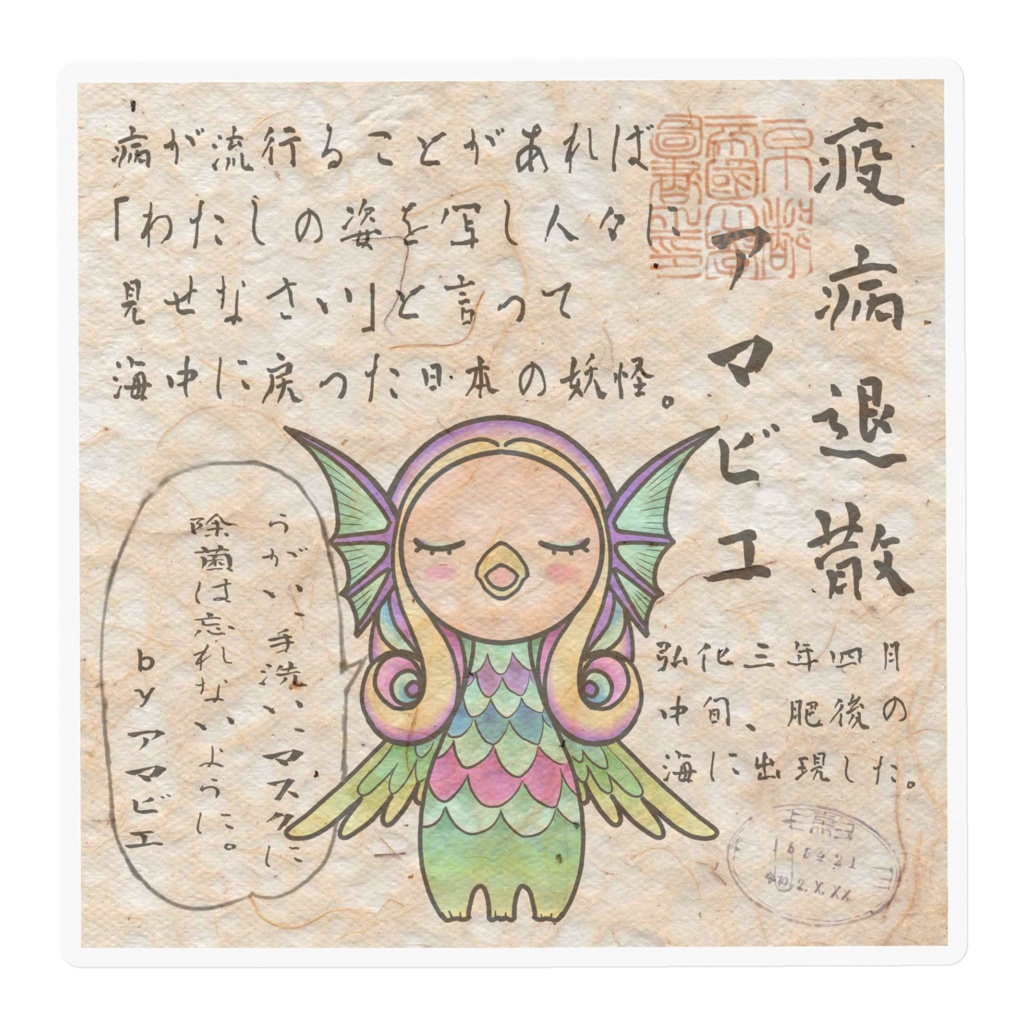 疫病退散
アマビエ
病が流行ることがあれば
「わたしの姿を写し人々に
見せなさい」と言って
海中に戻った日本の妖怪。
弘化三年四月
中旬、肥後の
海に出現した。
うがい、手洗い、マスクに
除菌は忘れないように。
byアマビエ